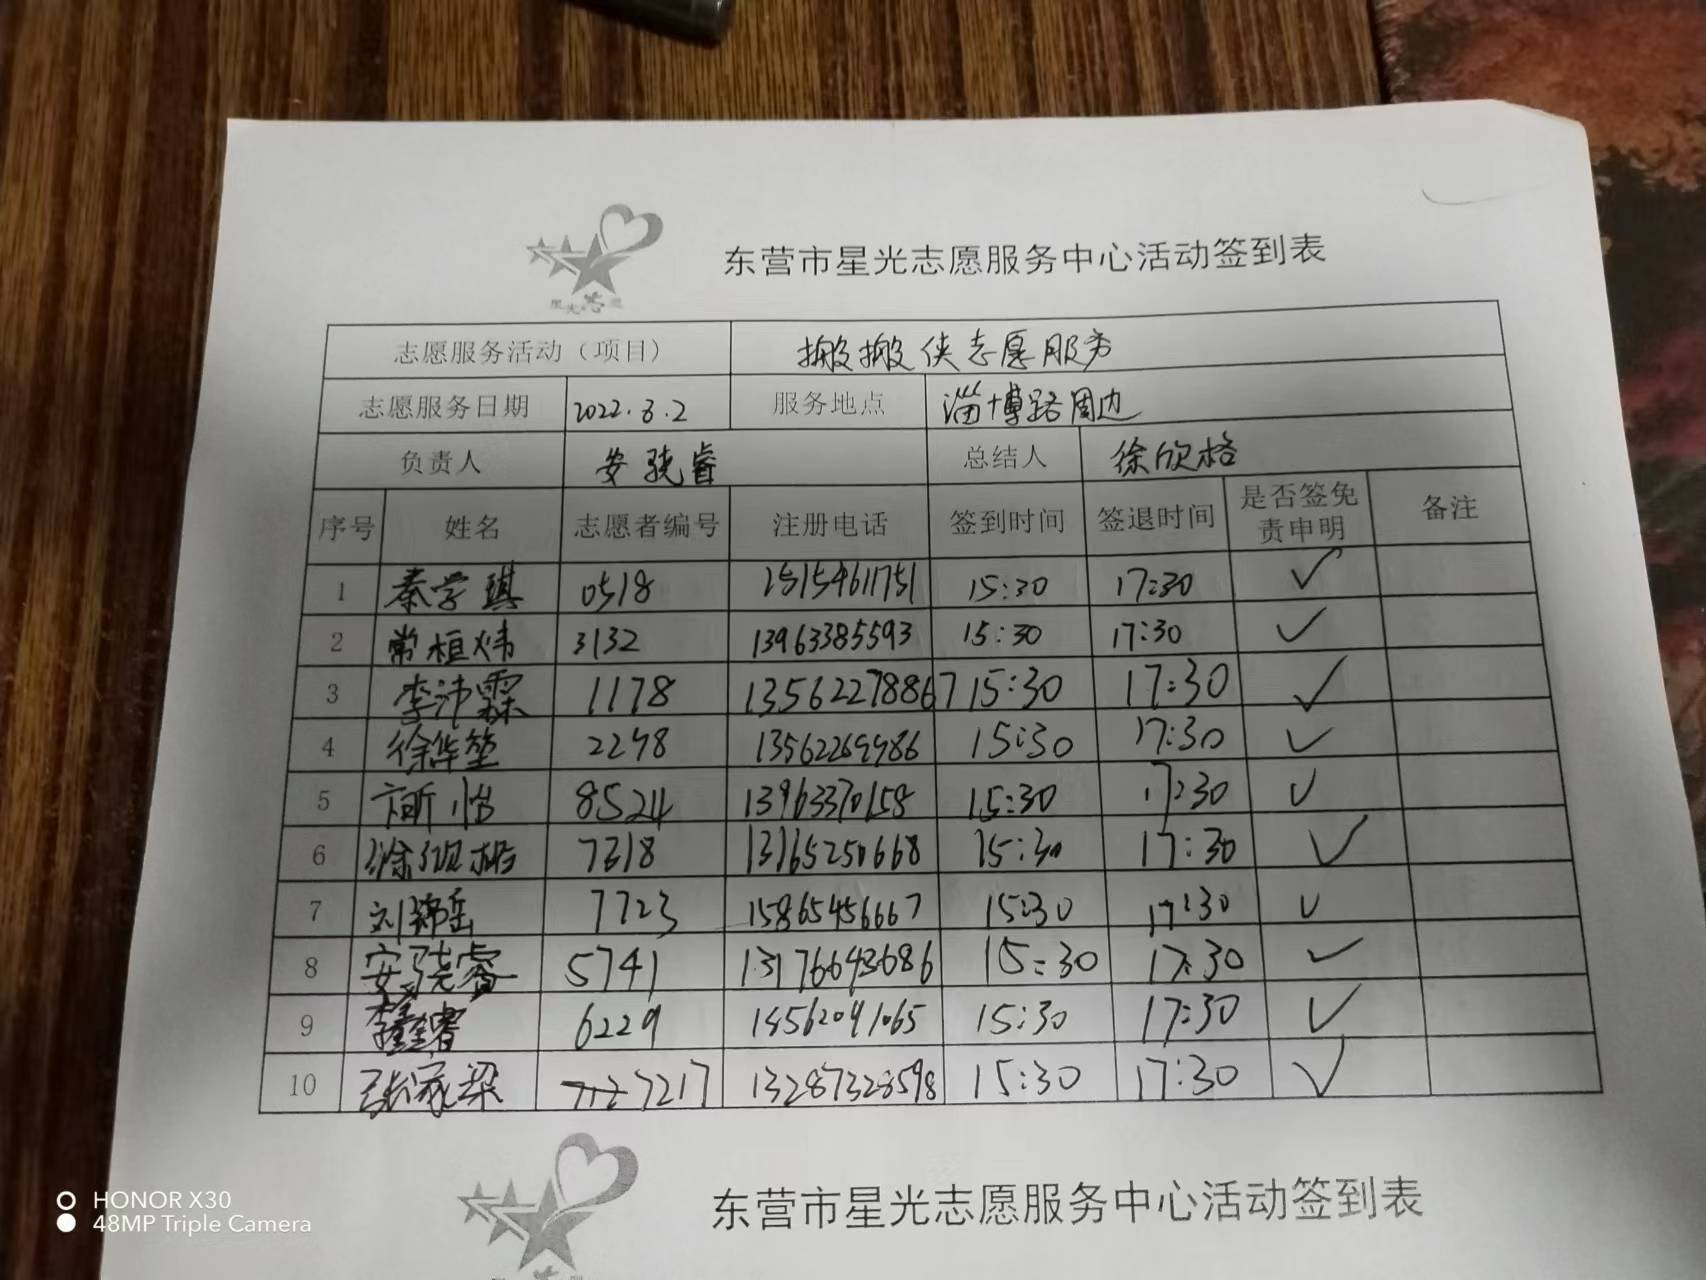 东营市星光志愿服务中心活动签到表
志愿服务活动（项目） 搬搬侠志愿服务
志愿服务日期 2022.8.2 服务地点 淄博路周边
负责人 安骁睿 总结人 徐欣格
序号 姓名 志愿者编号 注册电话 签到时间 签退时间 是否签免责申明 备注
1 秦学琪 0518 15154611751 15:30 17:30 ✓
2 常桓炜 3132 13963385593 15:30 17:30 ✓
3 李沛霖 1178 13562278867 15:30 17:30 ✓
4 徐华堃 2298 13562269986 15:30 17:30 ✓
5 怡 8524 13963370158 15:30 17:30 ✓
6 7318 13165250668 15:30 17:30 ✓
7 刘锦岳 7723 15865456667 15:30 17:30 ✓
8 安骁睿 5741 13176643686 15:30 17:30 ✓
9 6229 15:30 17:30 ✓
10 张家梁 7217 13287328598 15:30 17:30 ✓
东营市星光志愿服务中心活动签到表
HONOR X30
48MP Triple Camera